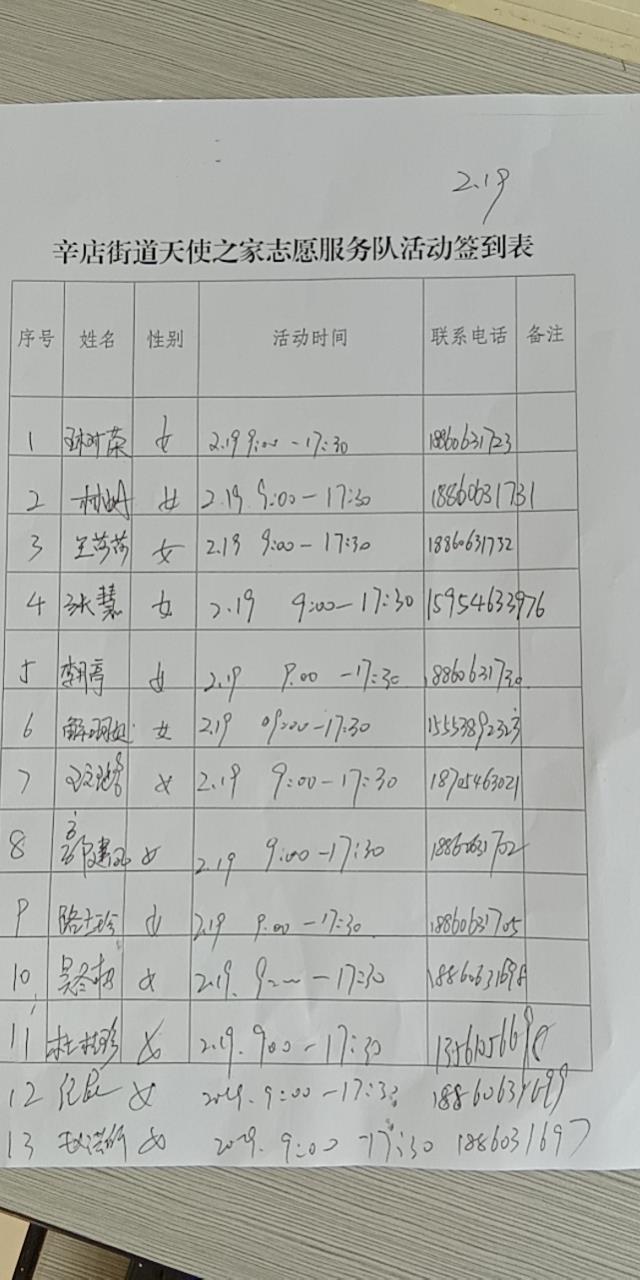 2.19
辛店街道天使之家志愿服务队活动签到表
序号 姓名 性别 活动时间 联系电话 备注
1 女 2.19 9:00 - 17:30 18860631723
2 女 2.19 9:00 - 17:30 18860631731
3 王莎莎 女 2.19 9:00 - 17:30 18860631732
4 张慧 女 2.19 9:00 - 17:30 15954633976
5 李亭 女 2.19 9.00 - 17:30 18860631730
6 女 2.19 09:00 - 17:30 15553892323
7 女 2.19 9:00 - 17:30 18705463021
8 女 2.19 9:00 - 17:30 18860631702
9 女 2.19 9.00 - 17:30 18860631705
10 女 2.19. 17:30 18860631698
11 杜桂珍 女 2.19. 9:00 - 17:30
12 女 9:00 - 17:30 18860631699
13 女 9:00 17:30 18860631697